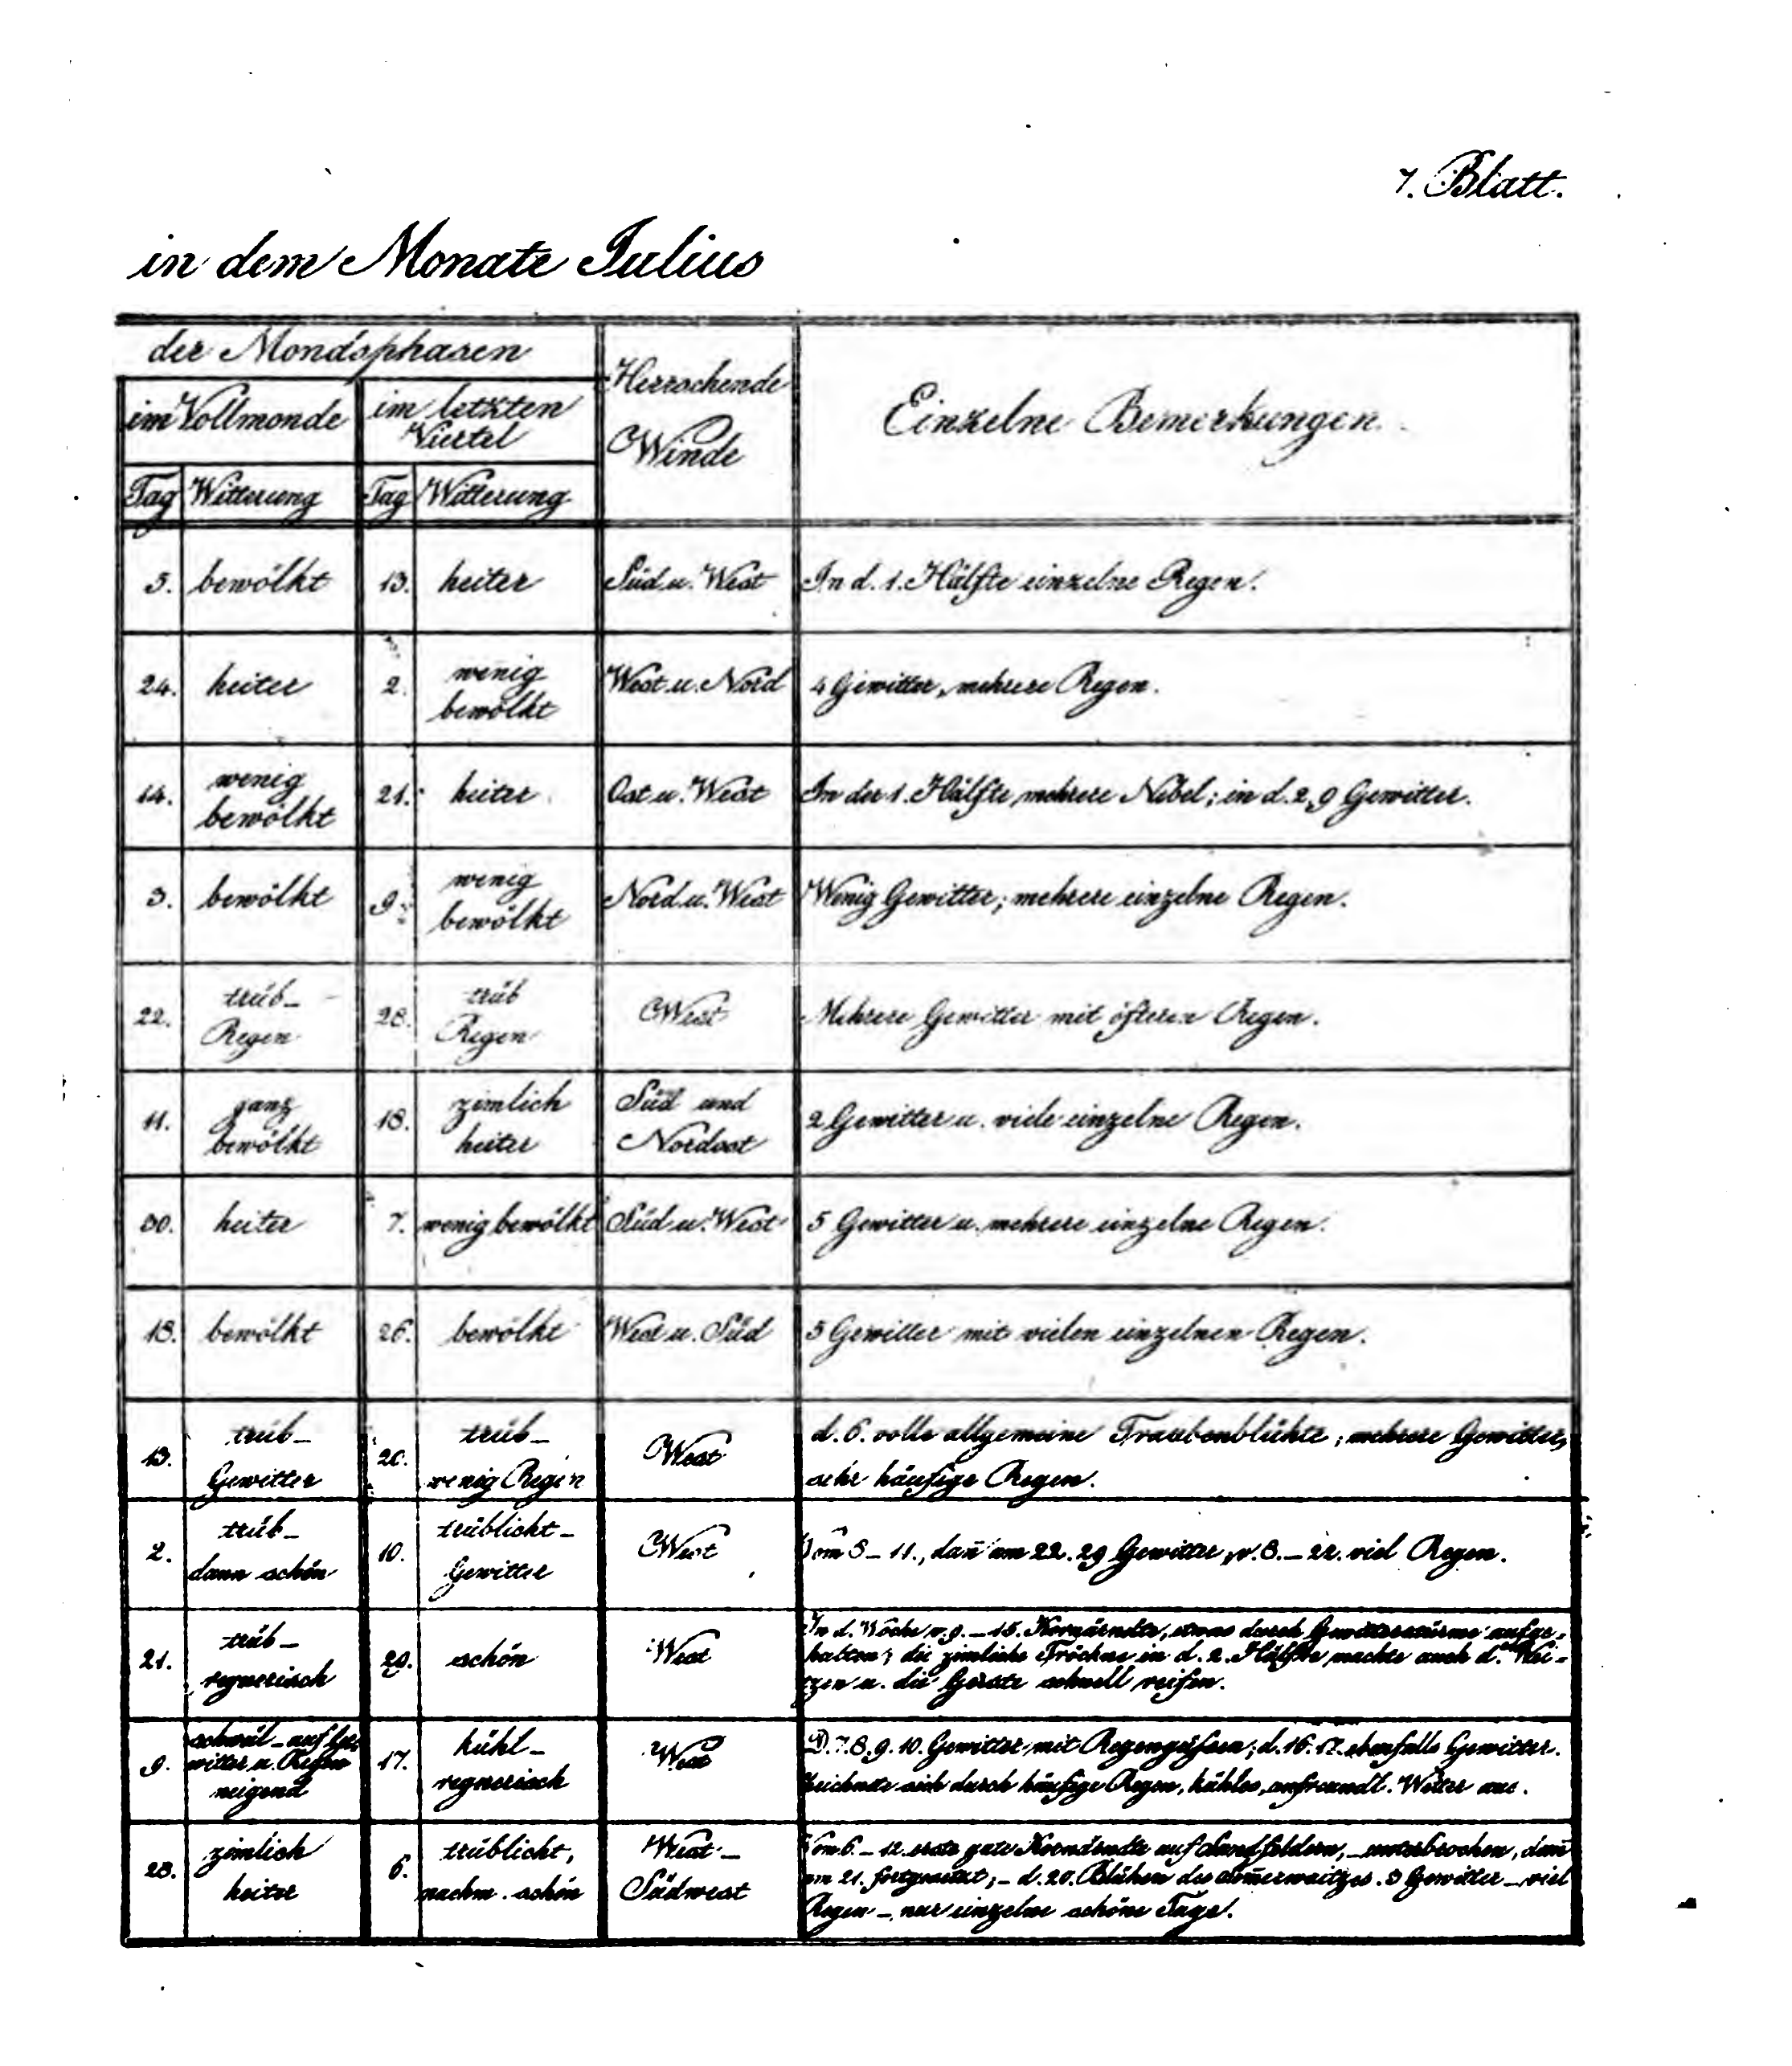 7. Blatt.
in dem Monate Julius
der Mondsphasen
Herrschende
Winde
Einzelne Bemerkungen.
im Vollmonde
im letzten
Viertel
Tag Witterung Tag Witterung
5. bewölkt 13. heiter Süd u. West In d. 1. Hälfte einzelne Regen.
24. heiter 2. wenig bewölkt West u. Nord 4 Gewitter, mehrere Regen.
14. wenig bewölkt 21. heiter Ost u. West In der 1. Hälfte mehrere Nebel; in d. 2, 9 Gewitter.
3. bewölkt 9. wenig bewölkt Nord u. West Wenig Gewitter; mehrere einzelne Regen.
22. trüb- Regen 28. trüb Regen West Mehrere Gewitter mit öfteren Regen.
11. ganz bewölkt 18. zimlich heiter Süd und Nordost 2 Gewitter u. viele einzelne Regen.
30. heiter 7. wenig bewölkt Süd u. West 5 Gewitter u. mehrere einzelne Regen.
18. bewölkt 26. bewölkt West u. Süd 5 Gewitter mit vielen einzelnen Regen.
13. trüb- Gewitter 20. trüb- wenig Regen West d. 6. volle allgemeine Traubenblühte; mehrere Gewitter,
sehr häufige Regen.
2. trüb- dann schön 10. trüblicht- Gewitter West Vom 8-11., dañ am 22. 29 Gewitter, v. 8.-22. viel Regen.
21. trüb- regnerisch 29. schön West In d. Woche v. 9.-15. Kornärndte, etwas durch Gewitterstürme aufge-
halten; die zimliche Tröckne in d. 2. Hälfte machte auch d. Wei-
tzen u. die Gerste schnell reifen.
9. schwül - auf Ge- witter u. Regen neigend 17. kühl- regnerisch West D. 7. 8. 9. 10. Gewitter mit Regengüssen; d. 16. 17. ebenfalls Gewitter.
Zeichnete sich durch häufige Regen, kühles, unfreundl. Wetter aus.
23. zimlich heiter 6. trüblicht, nachm. schön West- Südwest Vom 6.-12. erste gute Kornärndte auf Sandfeldern, - unterbrochen, dañ
am 21. fortgesetzt; - d. 20. Blühen des Som̃erwaitzes. 3 Gewitter - viel
Regen - nur einzelne schöne Tage.